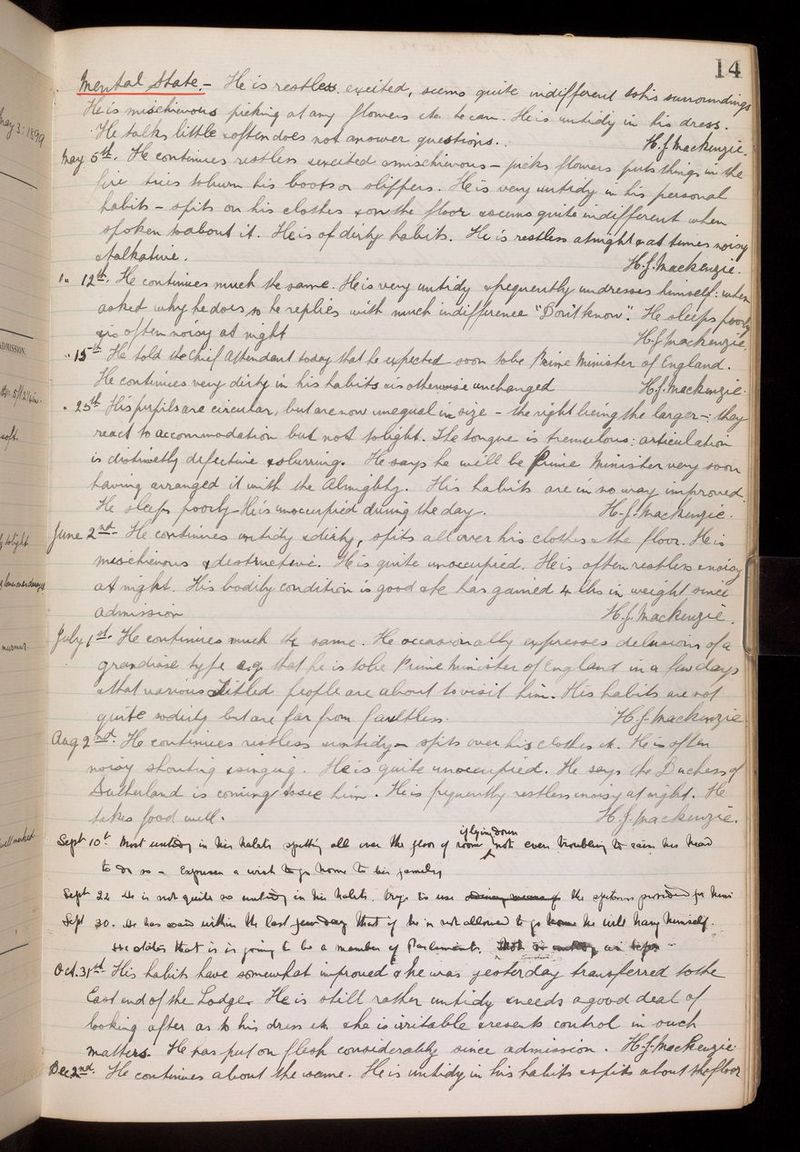 14
Mental State.- He is restless, excited, seems quite indifferent to his surroundings
May 3. 1899
He is mischievous picking at any flowers etc. he can. He is untidy in his dress.
He talks little & often does not answer questions.. H.J. Mackenzie.
May 5th. He continues restless & excited & mischievous - picks flowers puts things in the
fire tries to burn his boots or slippers. He is very untidy in his personal
habits - spits on his clothes & on the floor & seems quite indifferent when
spoken to about it. He is of dirty habits. He is restless at night & at times noisy
& talkative. H.J. Mackenzie.
" 12th. He continues much the same. He is very untidy & frequently undresses himself: when
asked why he does so he replies with much indifference "Don't know". He sleeps poorly
& is often noisy at night H.J. Mackenzie.
" 15th He told the Chief Attendant today that he expected soon to be Prime Minister of England.
He continues very dirty in his habits & is otherwise unchanged H.J. Mackenzie.
" 25th His pupils are circular, but are now unequal in size - the right being the larger -: they
react to accommodation but not to light. The tongue is tremulous: articulation
is distinctly defective & slurring. He says he will be Prime Minister very soon
having arranged it with the Almighty. His habits are in no way improved.
He sleeps poorly - He is unoccupied during the day. H.J. Mackenzie.
June 2nd - He continues untidy & dirty, spits all over his clothes & the floor. He is
mischievous & destructive. He is quite unoccupied. He is often restless & noisy
at night. His bodily condition is good & he has gained 4 lbs in weight since
admission H.J. Mackenzie.
July 1st. He continues much the same. He occasionally expresses delusions of a
grandiose type e.g. that he is to be Prime Minister of England in a few days
& that various titled people are about to visit him. His habits are not
quite so dirty but are far from faultless. H.J. Mackenzie.
Aug 2nd. He continues restless & untidy - spits over his clothes etc. He is often
noisy shouting & singing. He is quite unoccupied. He says the Duchess of
Sutherland is coming to see him. He is frequently restless & noisy at night. He
takes food well. H.J. Mackenzie.
Sept 10th Most untidy in his habits spitting all over the floor of room if lying down not even troubling to raise his head
to do so - Expresses a wish to go home to his family
Sept 22 He is not quite so untidy in his habits. Tries to use the spittoon provided for him
Sept 30. He has said within the last few days that if he is not allowed to go home he will hang himself.
He states that is is going to be a member of Parliament.
Oct. 31st His habits have somewhat improved & he was yesterday transferred to the
East end of the Lodge. He is still rather untidy & needs a good deal of
looking after as to his dress etc & he is irritable & resents control in such
matters. He has put on flesh considerably since admission. H.J. Mackenzie
Dec 2nd. He continues about the same. He is untidy in his habits & spits about the floor